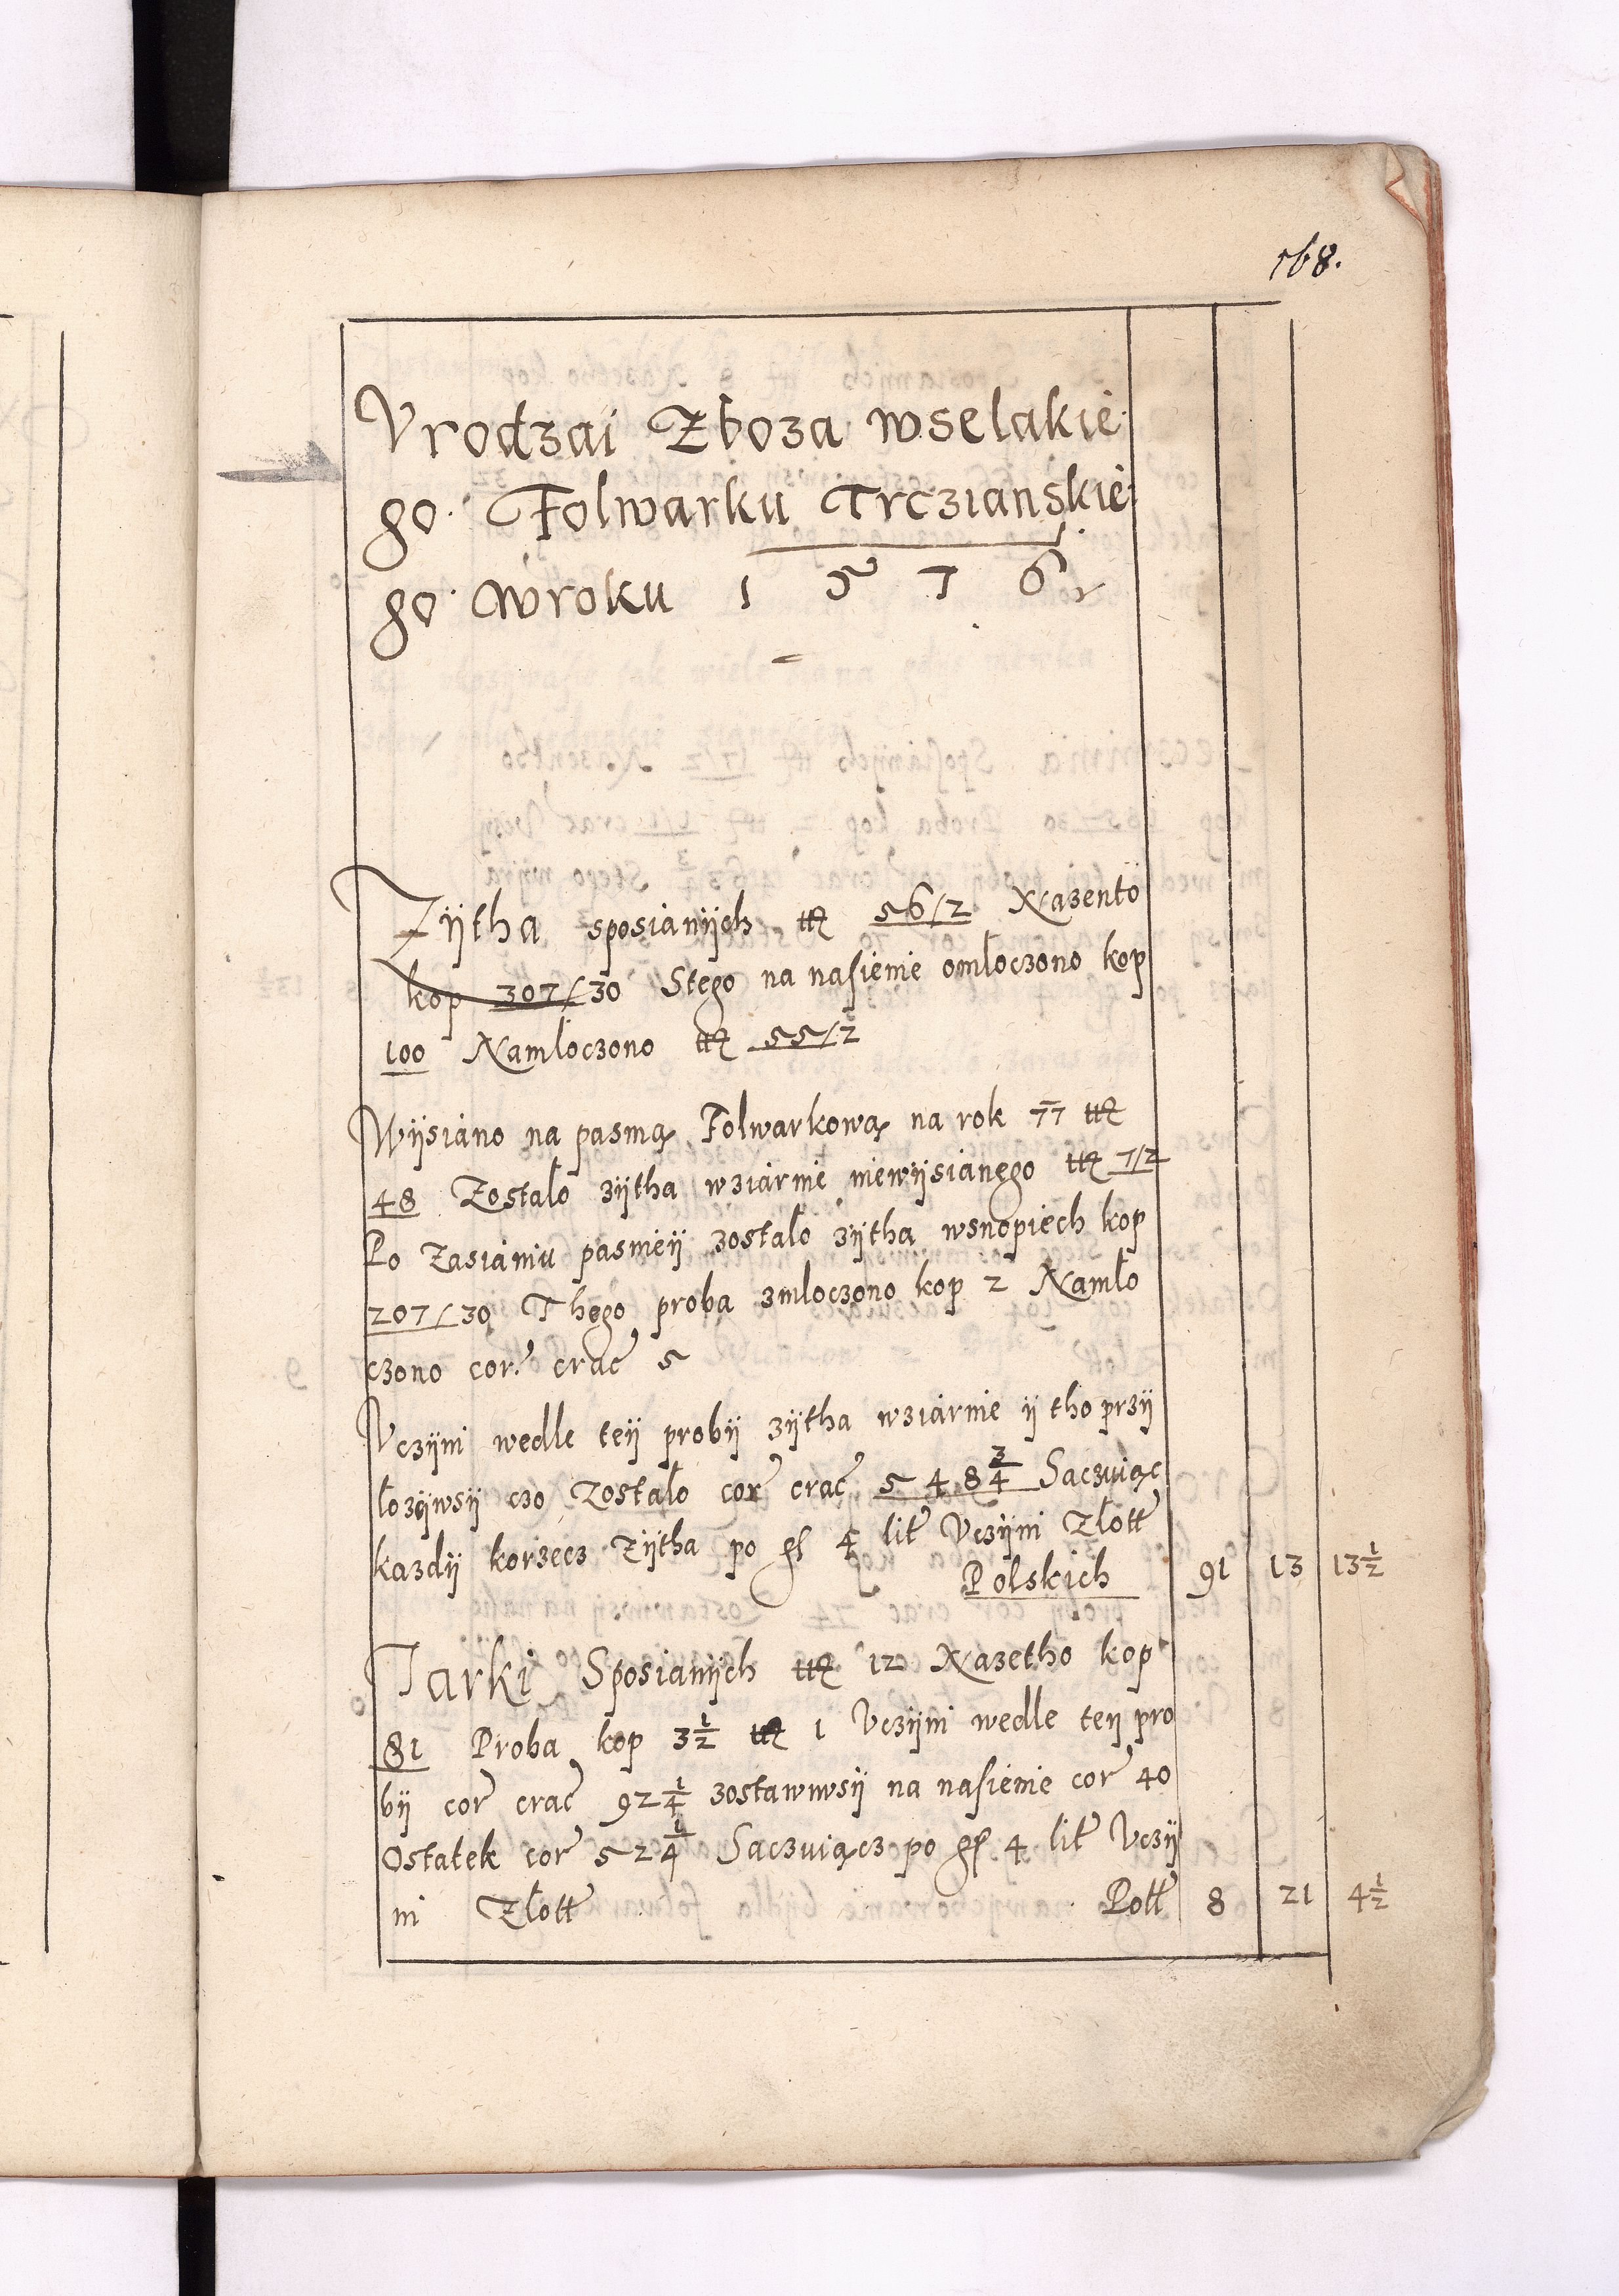 168.
Vrodzai Zboza wselakie
go Folwarku Trczianskie
go wroku 1 5 7 6
Zÿtha sposianÿch tt 56/2 Nazento
kop 307/30 Stego na nasienie omloczono kop
100 Namloczono tt 55/2
Wÿsiano na pasmą Folwarkową na rok 77 tt
48 Zostalo zÿtha wziarnie niewÿsianego tt 7/2
Po Zasianiu pasmeÿ zostalo zÿtha wsnopiech kop
207/30 Thego proba zmloczono kop 2 Namlo
czono cor crac 5
Vczÿni wedle teÿ probÿ zÿtha wziarnie ÿ tho przÿ
lozÿwsÿ czo Zostalo cor crac 5 4 8 3/4 Saczuiąc
kazdÿ korzecz Zÿtha po gſ 4 lit Vczÿni Zlott
Polskich 91 13 13 1/2
Jarki Sposianÿch tt 12 Nazetho kop
81 Proba kop 3 1/2 tt 1 Vczÿni wedle teÿ pro
bÿ cor crac 92 1/4 zostawiwsÿ na nasienie cor 40
Ostatek cor 52 1/4 Saczuiącz po gſ 4 lit Vczÿ
ni Zlott Poll 8 21 4 1/2